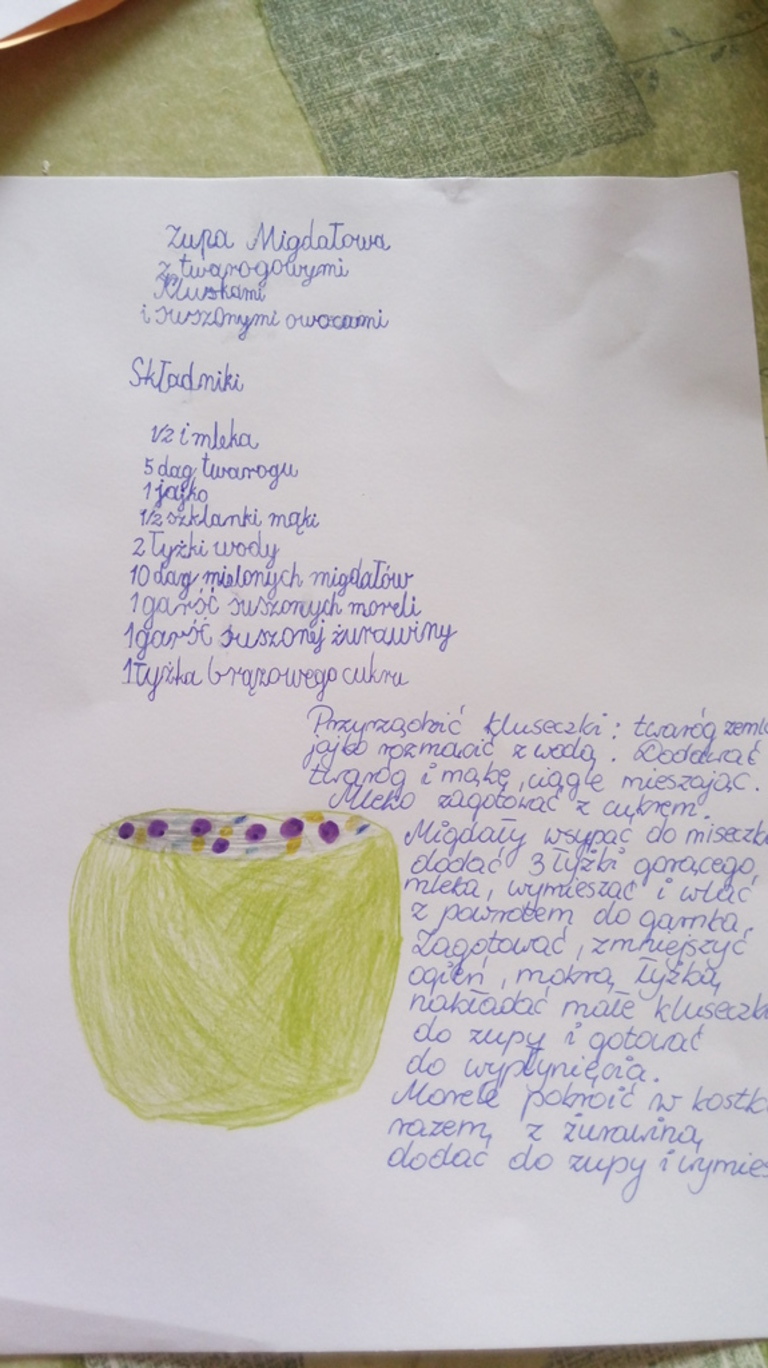 Zupa Migdałowa
z twarogowymi
Kluskami
i suszonymi owocami
Składniki
1/2 l mleka
5 dag twarogu
1 jajko
1/2 szklanki mąki
2 łyżki wody
10 dag mielonych migdałów
1 garść suszonych moreli
1 garść suszonej żurawiny
1 łyżka brązowego cukru
Przyrządzić kluseczki: twaróg zemle
jajko rozmącić z wodą. Dodawać
twaróg i mąkę, ciągle mieszając.
Mleko zagotować z cukrem.
Migdały wsypać do miseczk
dodać 3 łyżki gorącego
mleka, wymieszać i wlać
z powrotem do garnka.
Zagotować, zmniejszyć
ogień, mokrą łyżką
nakładać małe kluseczk
do zupy i gotować
do wypłynięcia.
Morele pokroić w kostk
razem z żurawiną
dodać do zupy i wymies